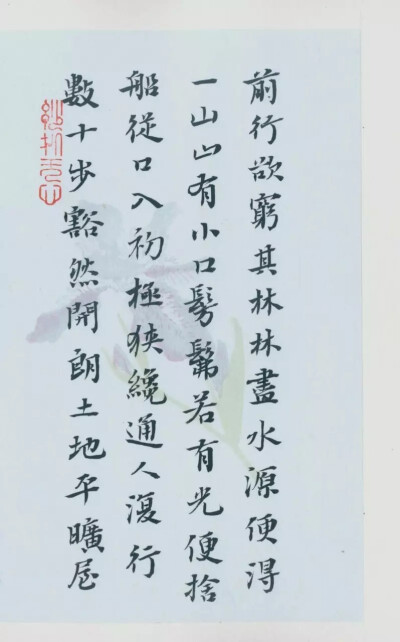 前行欲窮其林林盡水源便得
一山山有小口髣髴若有光便捨
船從口入初極狹纔通人復行
數十步豁然開朗土地平曠屋